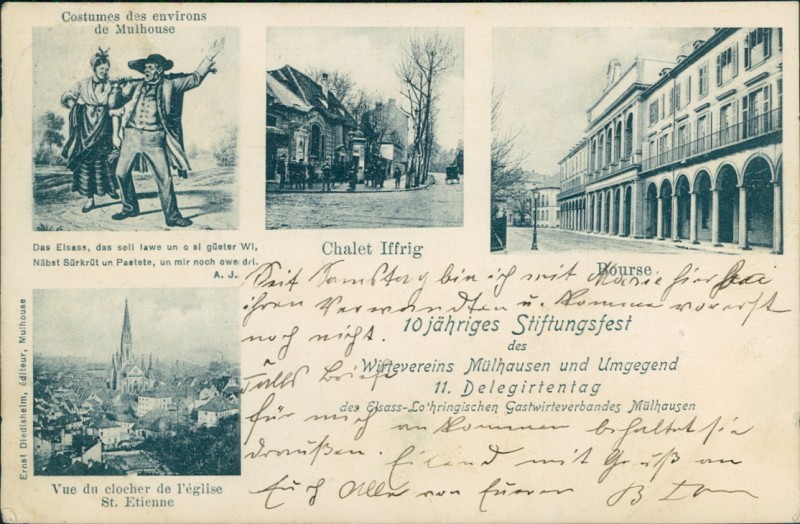 Costumes des environs
de Mulhouse
Das Elsass, das soll lawe un o si güeter Wi,
Nåbst Sürkrüt un Pastete, un mir noch owe dri.
A. J.
Chalet Iffrig
Bourse
Seit Samstag bin ich mit Marie hier bei
ihren Verwandten u. komme vorerst
noch nicht.
10jähriges Stiftungsfest
des
Wirtevereins Mülhausen und Umgegend
11. Delegirtentag
des Elsass-Lothringischen Gastwirteverbandes Mülhausen
Falls Briefe
für mich ankommen behaltet sie
draußen. Eilend mit Gruß an
Euch Alle von Euerem
Ernst Diedisheim, éditeur, Mulhouse
Vue du clocher de l'église
St. Etienne